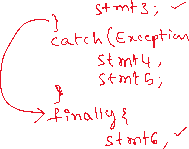 stmt3; ✓
}
catch(Exception
stmt4,
stmt5;
}
finally{
stmt6, ✓